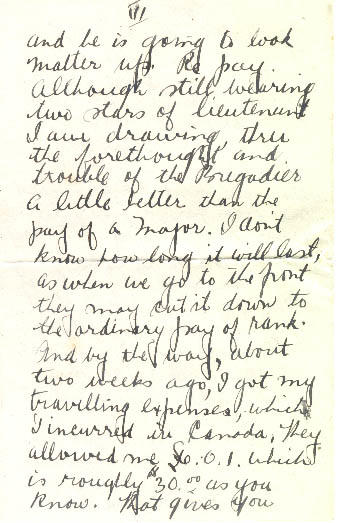 VI
and he is going to look
matter up. Re pay.
Although still wearing
two stars of lieutenant
I am drawing, thru
the forethought and
trouble of the Brigadier
a little better than the
pay of a Major. I don't
know how long it will last,
as when we go to the front
they may cut it down to
the ordinary pay of rank.
And by the way, about
two weeks ago, I got my
travelling expenses, which
I incurred in Canada. They
allowed me £6.0.1. which
is roughly $30.00 as you
know. That gives you